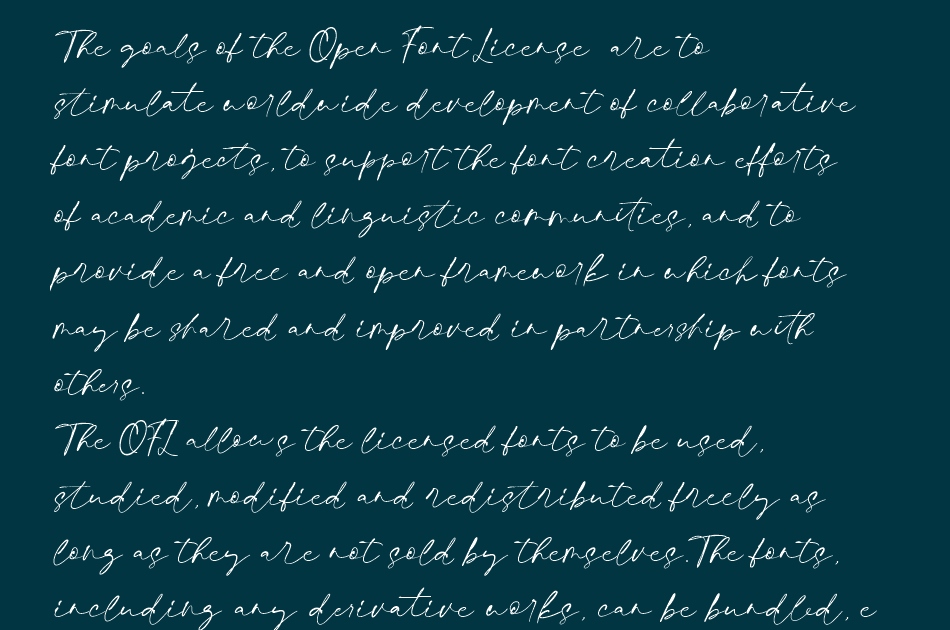 The goals of the Open Font License are to
stimulate worldwide development of collaborative
font projects, to support the font creation efforts
of academic and linguistic communities, and to
provide a free and open framework in which fonts
may be shared and improved in partnership with
others.
The OFL allows the licensed fonts to be used,
studied, modified and redistributed freely as
long as they are not sold by themselves. The fonts,
including any derivative works, can be bundled, e